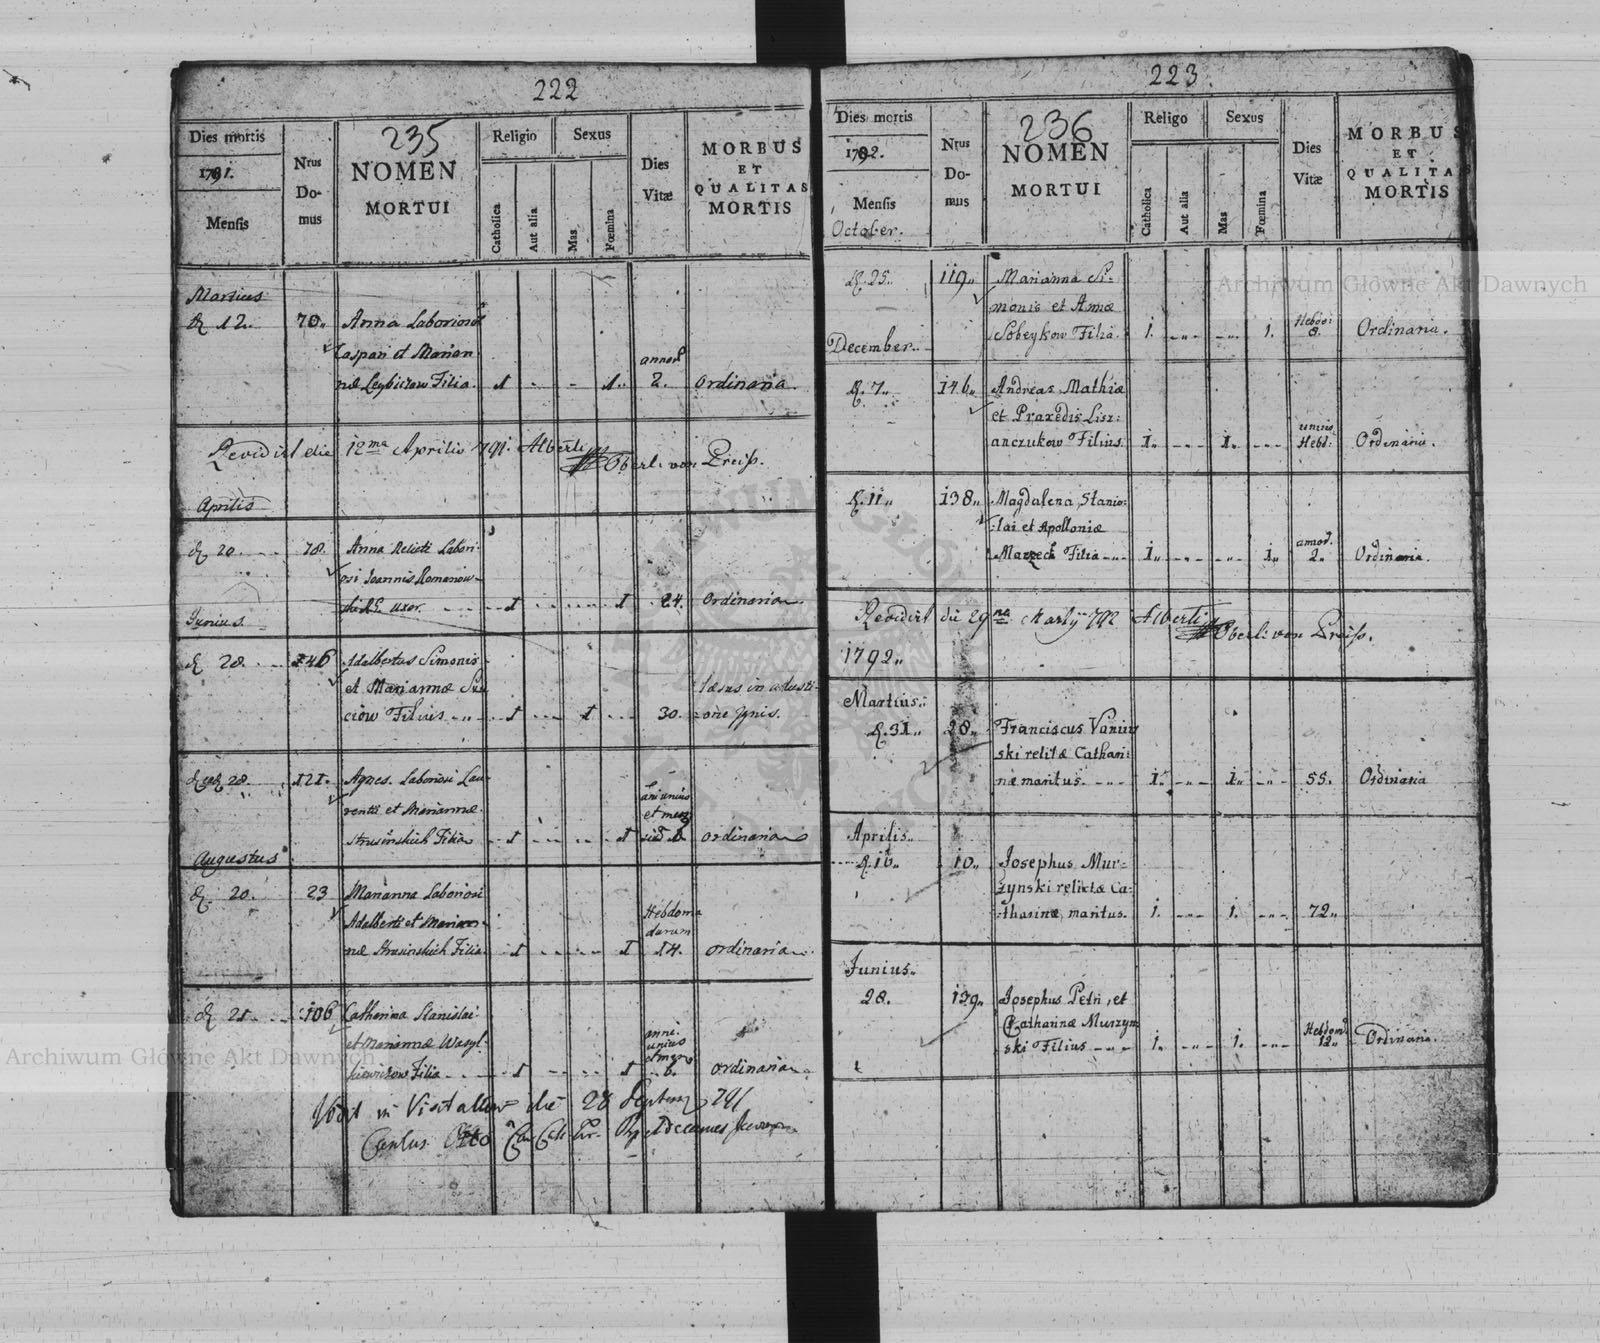 222
Dies mortis
1791.
Mensis
Nrus
Do-
mus
235
NOMEN
MORTUI
Religio
Catholica
Aut alia
Sexus
Mas
Fœmina
Dies
Vitæ
MORBUS
ET
QUALITAS
MORTIS
Martius
12. 70. Anna Laboriosi
Caspari et Marian
næ Filia. 1 1. annor 2. ordinaria.
Revidirt die 12ma Aprilis 791. Alberti
Oberl: von Preiss.
Aprilis
20. 78. Anna Relicti Labori:
osi Joannis Romanow-
uxor. 1 1 24. ordinaria
Junius.
28. 146 Adalbertus Simonis
et Mariannæ
Filius 1 1 30. læsus in adusti-
one Ignis.
28. 121. Agnes Laboriosi Lau-
rentii et Mariannæ
Strusinskich Filia 1 1 ani unius
et men
ordinaria
Augustus
20. 23 Marianna Laboriosi
Adalberti et Marian-
næ Strusinskich Filia. 1 1 Hebdoma
darum
14. ordinaria
21. 106 Catherina Stanislai
et Mariannæ
Filia 1 1 anni
unius
et mens
6. ordinaria
die 28 791
223.
Dies mortis
1792.
Mensis
October.
Nrus
Do-
mus
236
NOMEN
MORTUI
Religo
Catholica
Aut alia
Sexus
Mas
Fœmina
Dies
Vitæ
MORBUS
ET
QUALITAS
MORTIS
25. 119 Marianna Si-
monis et Annæ
Sobeykow Filia 1. 1. Hebdo:
8. Ordinaria.
December.
7. 146 Andreas Mathiæ
et Praxedis Lisz:
anczukow Filius. 1. 1. unius
Hebd: Ordinaria.
11 138 Magdalena Stanis:
:lai et Apolloniæ
Mazzech Filia 1. 1. annor.
2. Ordinaria.
Revidirt die 29na Martij 792 Alberti
Oberl: von Preiss.
1792
Martius.
31 28 Franciscus
ski relitæ Cathari:
næ maritus. 1. 1. 55. Ordinaria
Aprilis
16 10 Josephus Mur:
zynski relictæ Ca:
:tharinæ maritus. 1. 1. 72
Junius.
28. 139 Josephus Petri, et
Catharinæ Murzyn
ski Filius 1. 1. Hebdom
12 Ordinaria.
Archiwum Główne Akt Dawnych
Archiwum Główne Akt Dawnych